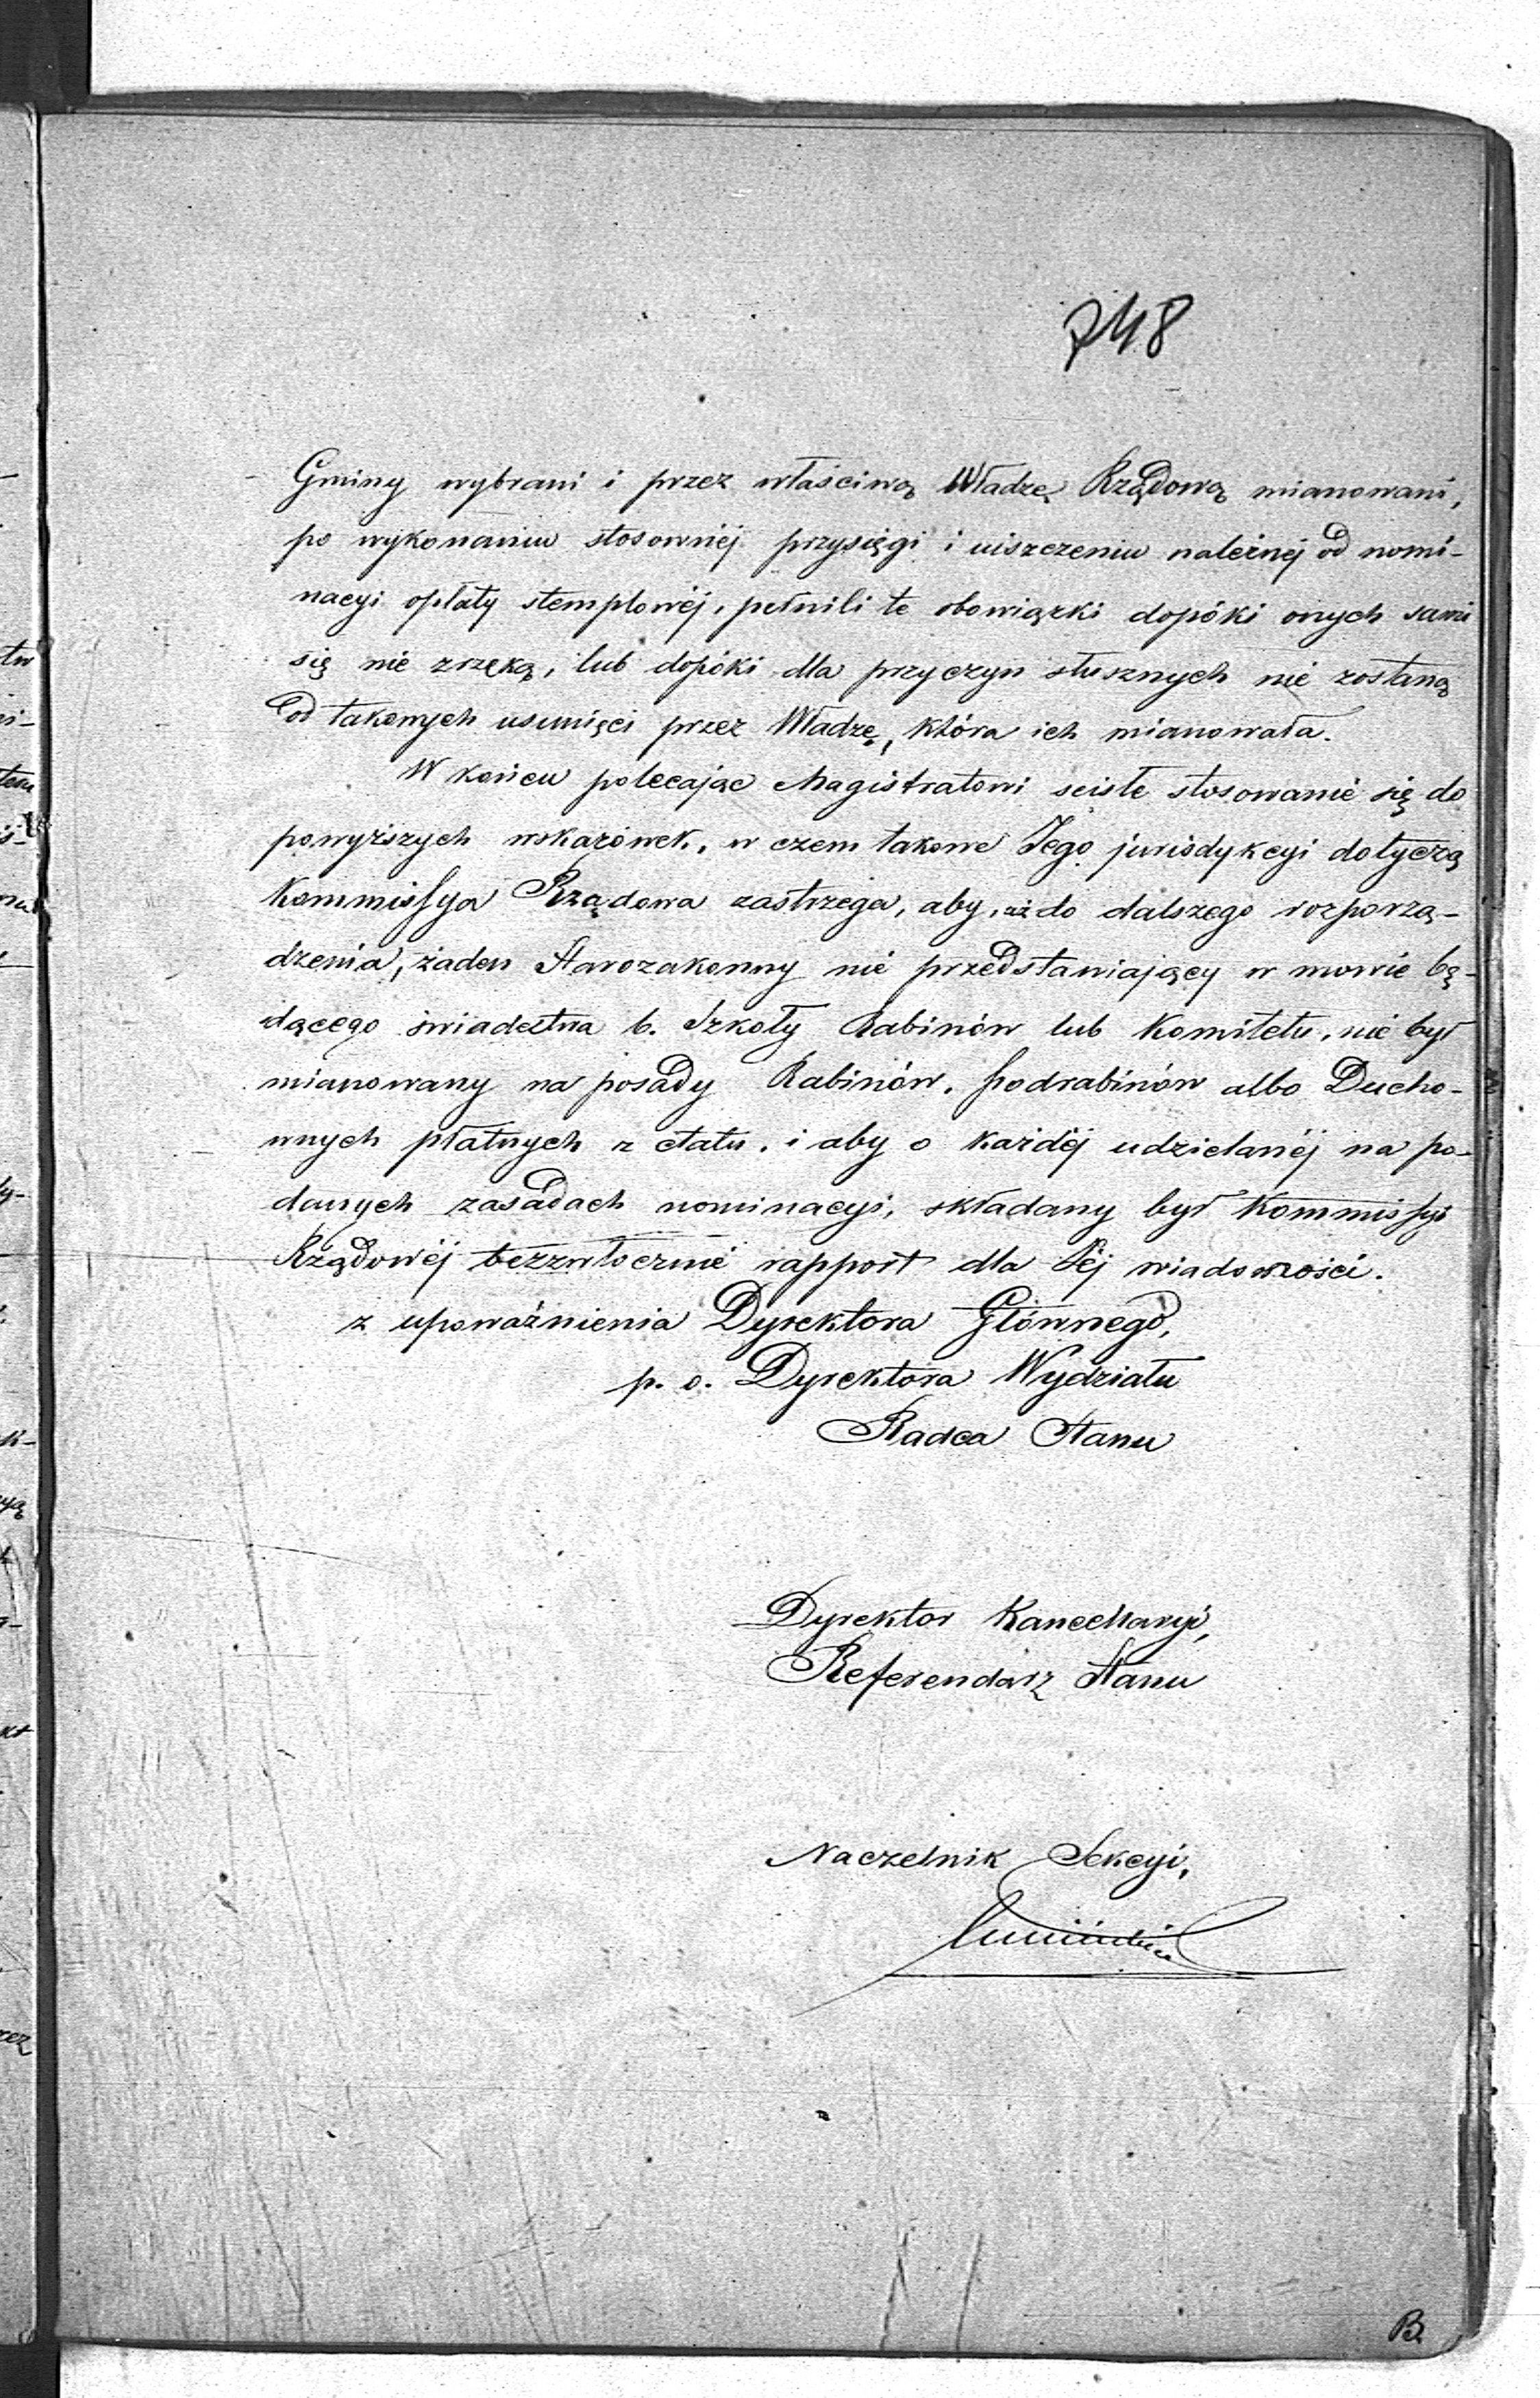 748
Gminy wybrani i przez właściwą Władzę Rządową mianowani,
po wykonaniu stosownéj przysięgi i uiszczeniu należnéj od nomi-
nacyi opłaty stemplowéj, pełnili te obowiązki dopóki onych sami
się nie zrzeką, lub dopóki dla przyczyn słusznych nie zostaną
od takowych usunięci przez Władzę, która ich mianowała.
W końcu polecając Magistratowi ściśle stosowanie się do
powyższych wskazówek, w czem takowe Jego jurisdykcyi dotyczą
Kommissya Rządowa zastrzega, aby, aż do dalszego rozporzą-
dzenia, żaden Starozakonny nie przedstawiający w mowie bę-
dącego świadectwa b. Szkoły Rabinów lub Komitetu, nie był
mianowany na posady Rabinów, Podrabinów albo Ducho-
wnych płatnych z etatu, i aby o każdéj udzielanéj na po-
danych zasadach nominacyi, składany był Kommissyi
Rządowéj bezzwłocznie rapport dla Jéj wiadomości.
z upoważnienia Dyrektora Głównego,
p. o. Dyrektora Wydziału
Radca Stanu
Dyrektor Kancellaryi,
Referendarz Stanu
Naczelnik Sekcyi,
B.